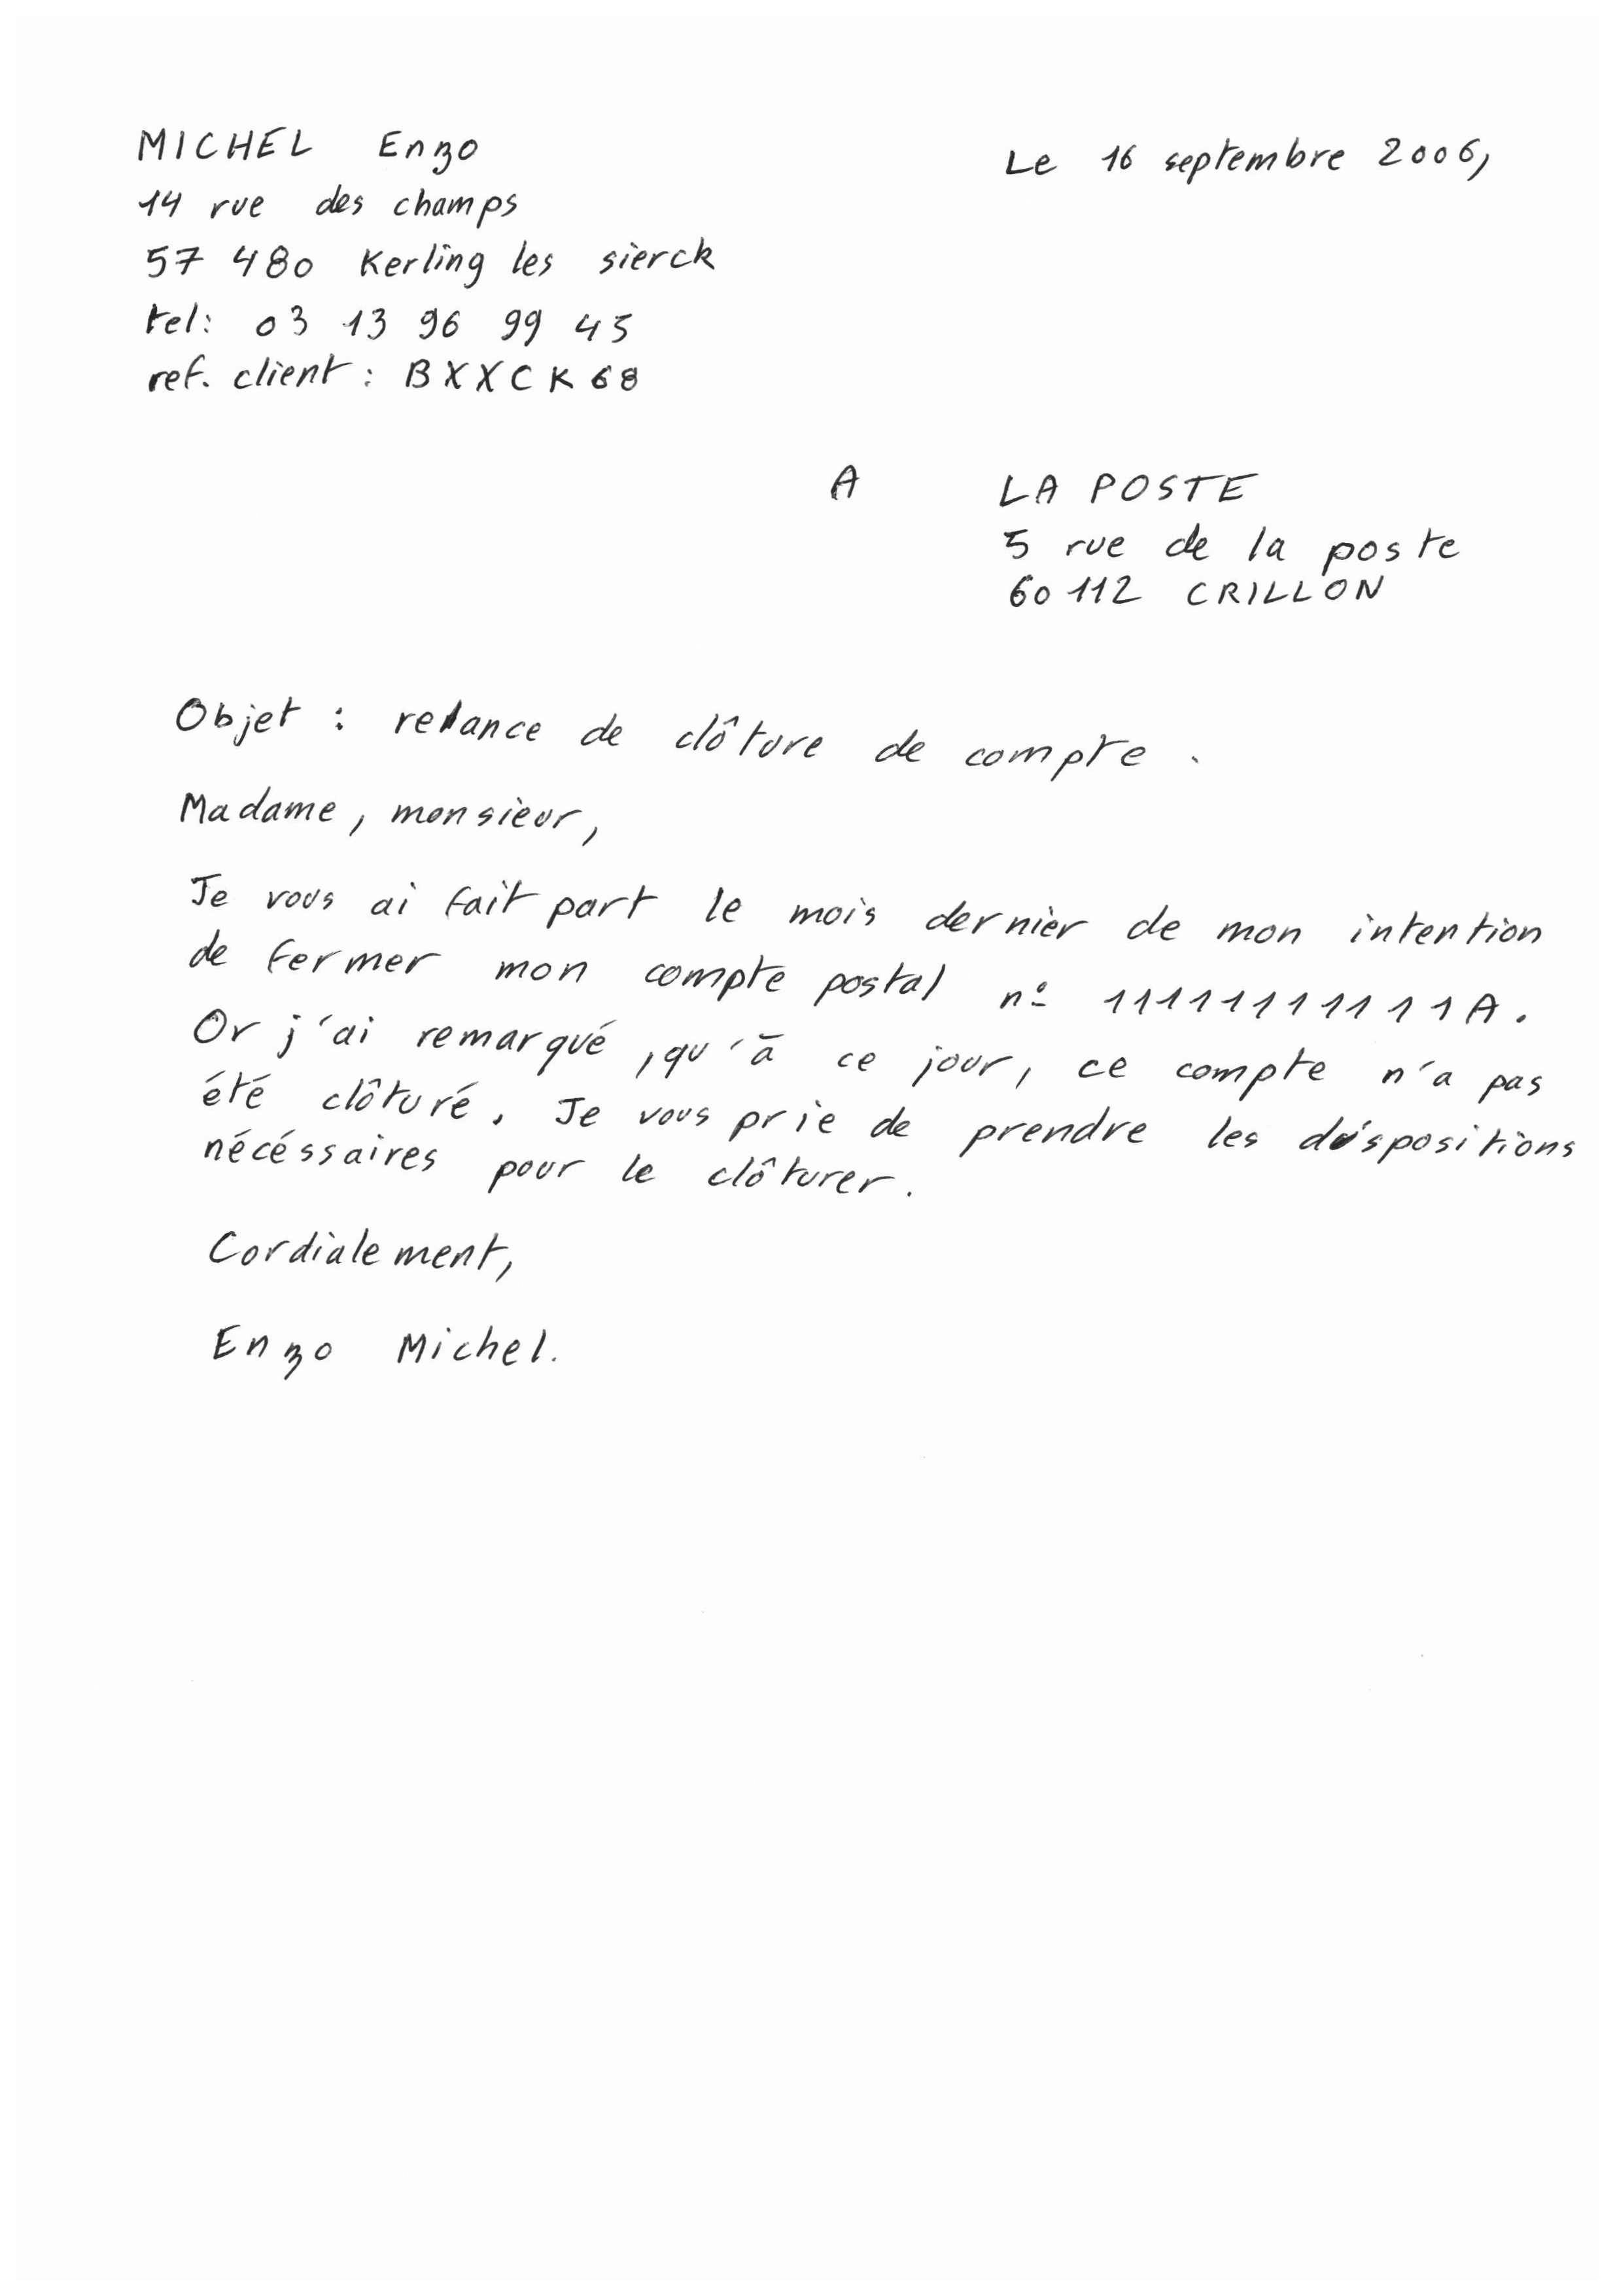 MICHEL Enzo
Le 16 septembre 2006,
14 rue des champs
57 480 Kerling les sierck
tel: 03 13 96 99 45
ref. client : BXXCK68
A LA POSTE
5 rue de la poste
60 112 CRILLON
Objet : relance de clôture de compte.
Madame, monsieur,
Je vous ai fait part le mois dernier de mon intention
de fermer mon compte postal n° 11111111111A.
Or j'ai remarqué, qu'à ce jour, ce compte n'a pas
été clôturé. Je vous prie de prendre les dispositions
nécéssaires pour le clôturer.
Cordialement,
Enzo Michel.